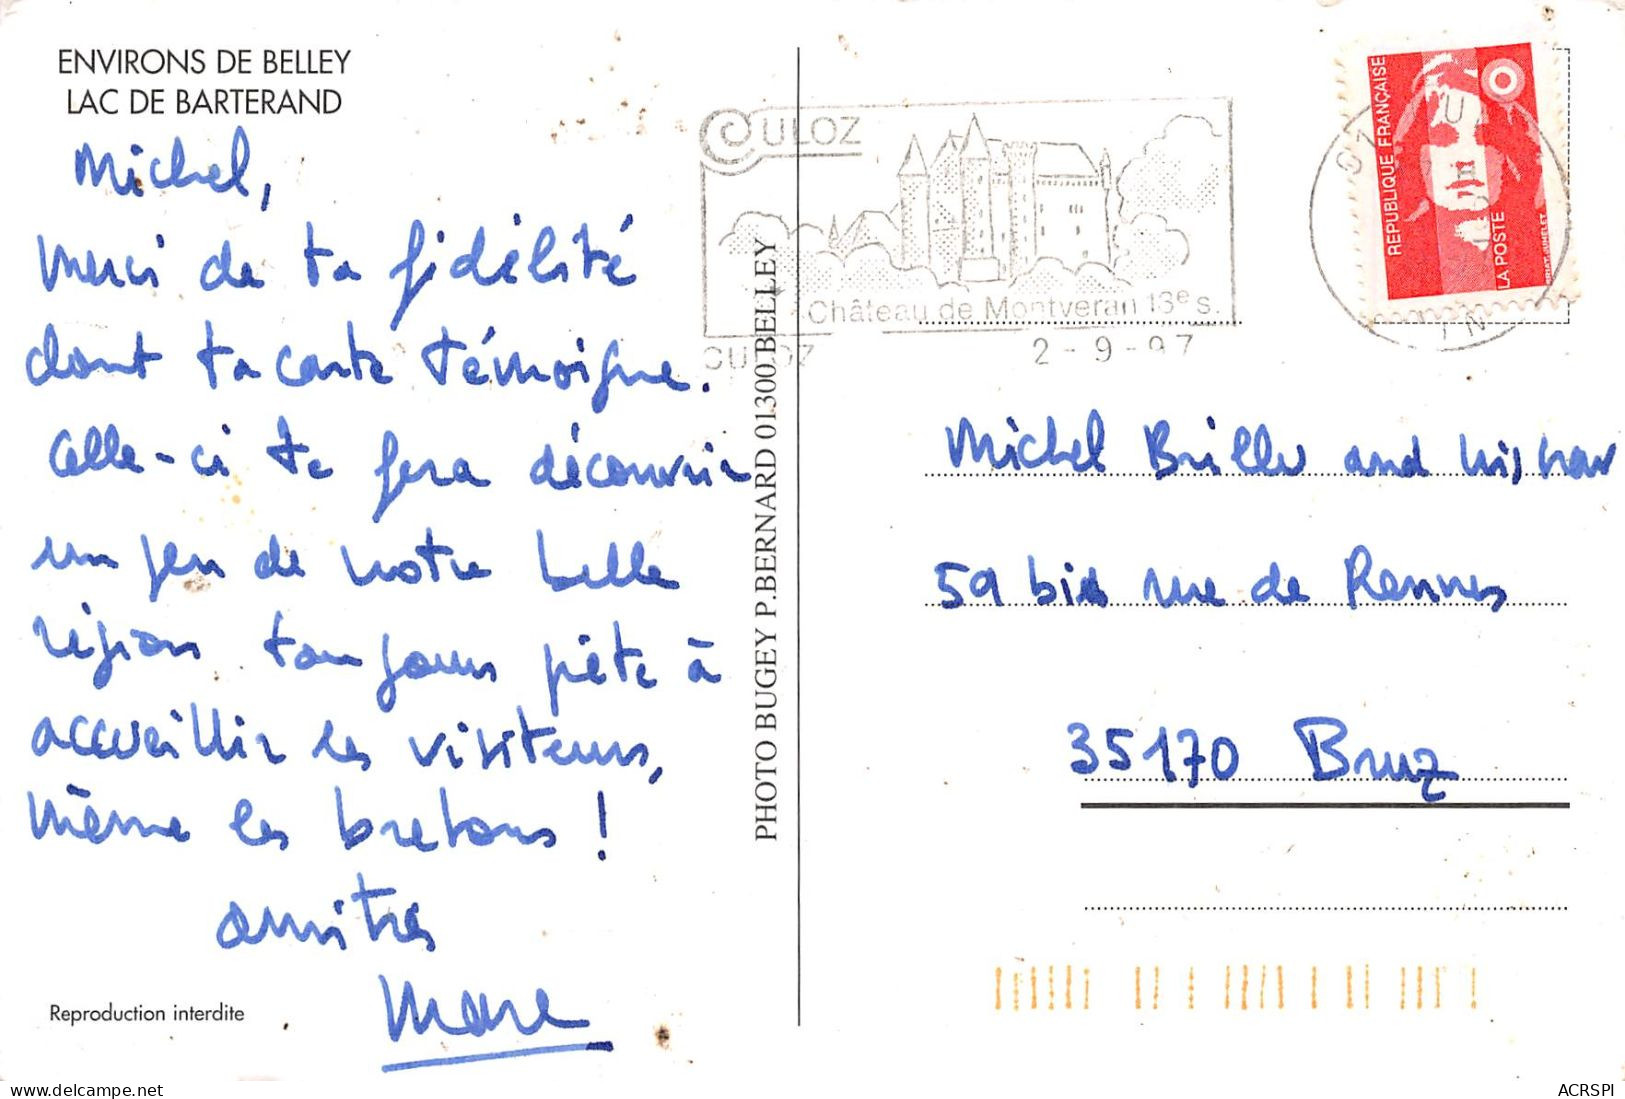 ENVIRONS DE BELLEY
LAC DE BARTERAND
Michel,
Merci de ta fidélité
dont ta carte témoigne.
Celle-ci te fera découvrir
un peu de notre belle
région toujours prête à
accueillir les visiteurs,
même les bretons !
amitiés
Marc
Reproduction interdite
PHOTO BUGEY P.BERNARD 01300 BELLEY
CULOZ
Château de Montveran 13e s.
CULOZ 2-9-97
REPUBLIQUE FRANÇAISE
LA POSTE
01
AIN
Michel
and
59 bis rue de Rennes
35170 Bruz
delcampe.net
ACRSPI